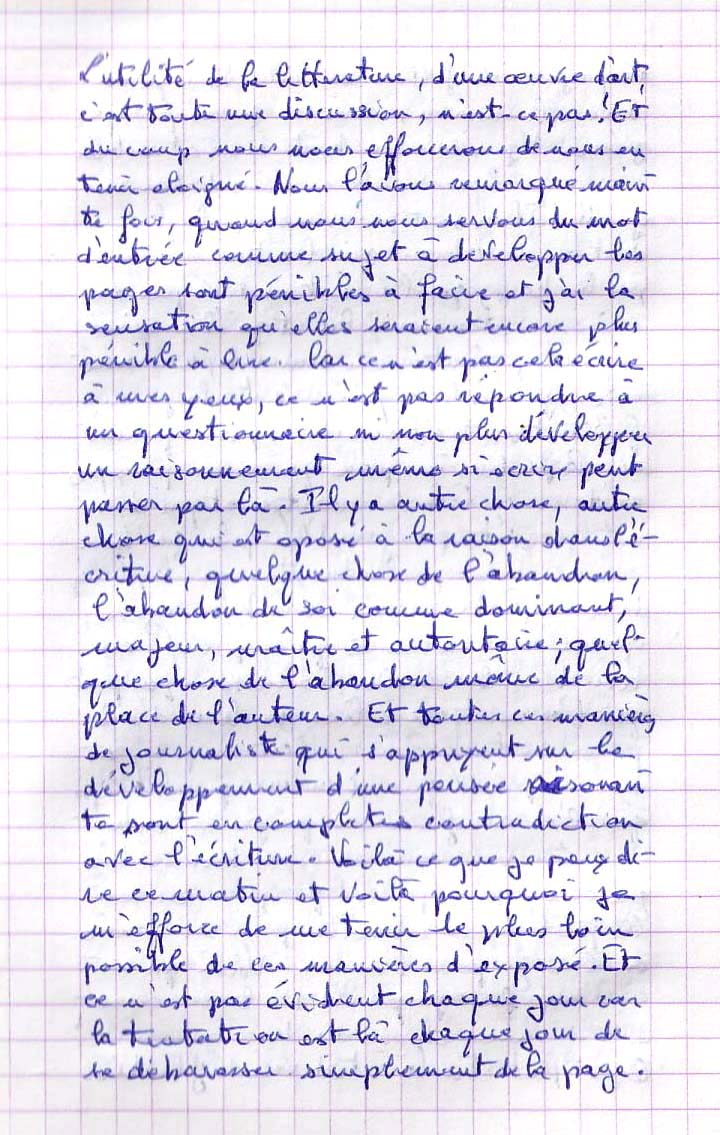 L'utilité de la littérature, d'une œuvre d'art,
c'est toute une discussion, n'est-ce pas! Et
du coup nous nous efforcerons de nous en
tenir éloigné. Nous l'avons remarqué main
te fois, quand nous nous servons du mot
d'entrée comme sujet à développer les
pages sont pénibles à faire et j'ai la
sensation qu'elles seraient encore plus
pénible à lire. Car ce n'est pas cela écrire
à mes yeux, ce n'est pas répondre à
un questionnaire ni non plus développer
un raisonnement même si écrire peut
passer par là. Il y a autre chose, autre
chose qui est oposé à la raison dans l'é-
criture, quelque chose de l'abandon,
l'abandon de soi comme dominant,
majeur, maître et autoritaire; quel-
que chose de l'abandon même de la
place de l'auteur. Et toutes ces manières
de journaliste qui s'appuyent sur le
développement d'une pensée raisonan
te sont en complète contradiction
avec l'écriture. Voilà ce que je peux di-
re ce matin et voilà pourquoi je
m'efforce de me tenir le plus loin
possible de ces manières d'exposé. Et
ce n'est pas évident chaque jour car
la tentation est là chaque jour de
se débarasser simplement de la page.